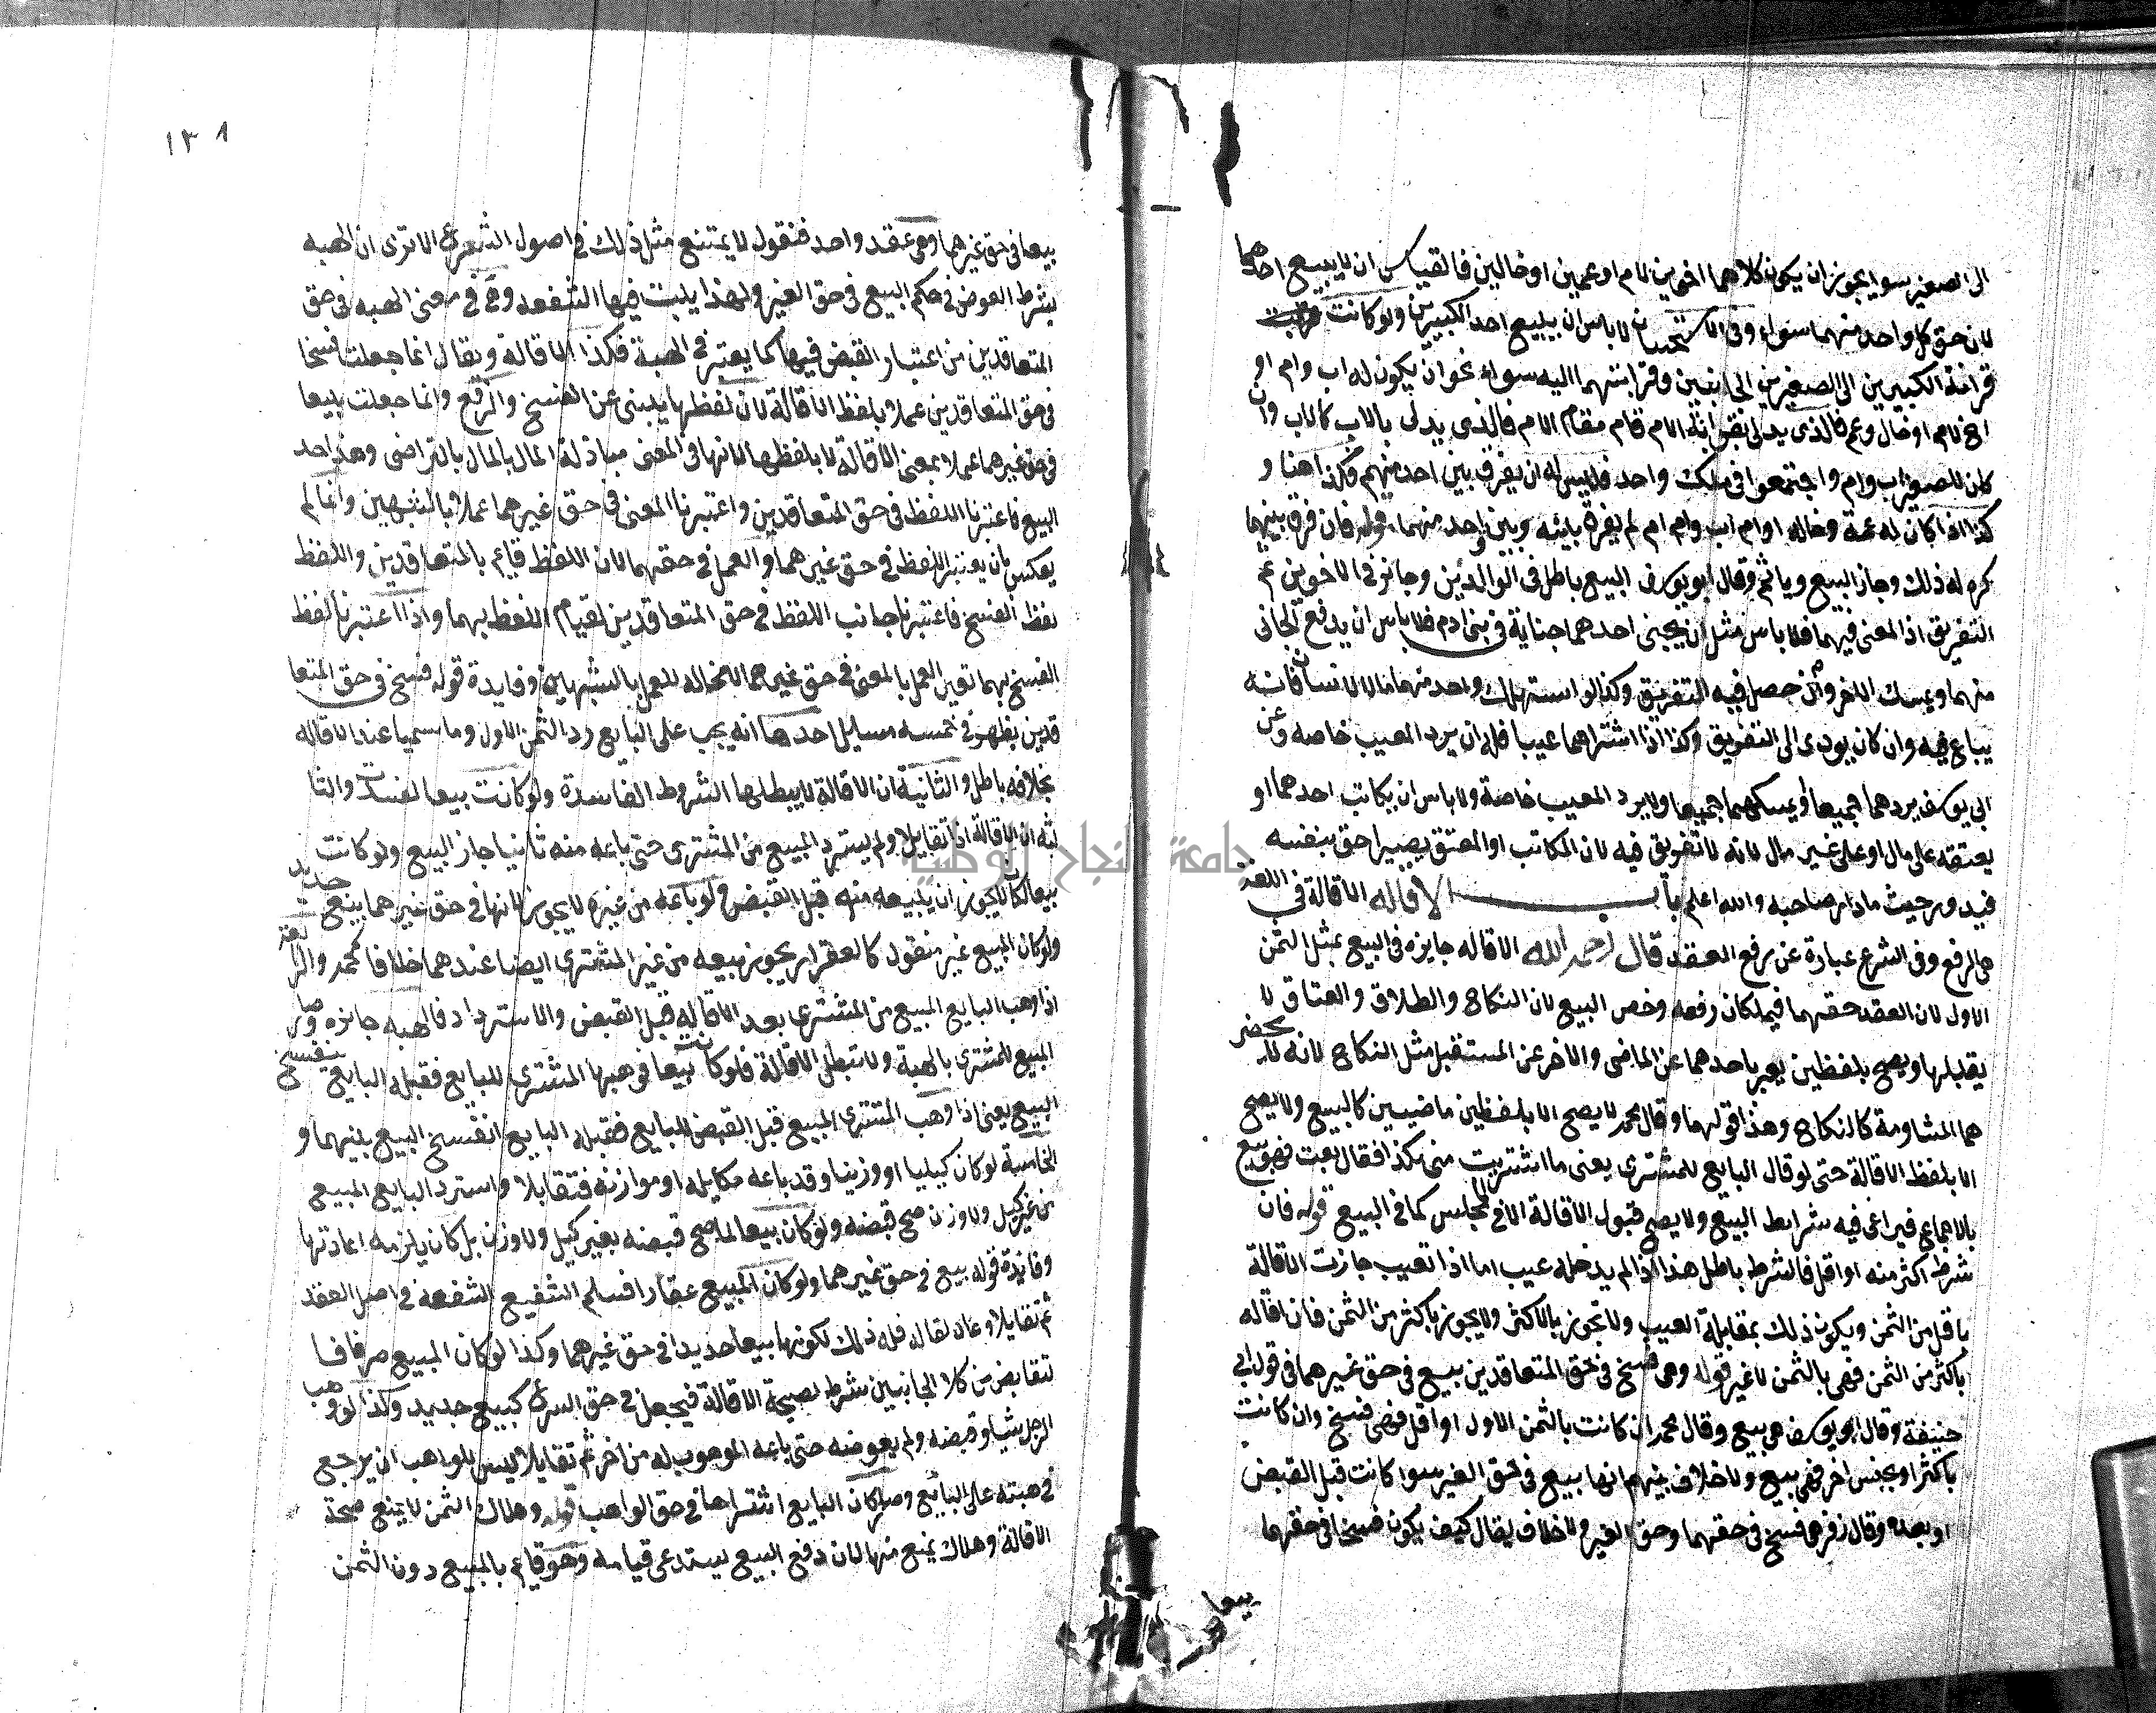 الى الصغير سوا يجوز ان يكون كلاهما اخوين لام او عمين او خالين فالقياس ان لا يبيع احدهما
لان حق كل واحد منهما سواء وفى الاستحسان لا باس ان يبيع احد الكبيرين ولو كانت
قرابة الكبيرين الى الصغير من الجانبين وقرابتهما اليه سواء نحو ان يكون له اب وام او
اخ لام او خال وعم فالذى يدلى بقرابة الام قام مقام الام فالذى يدلى بالاب كالاب وان
كان للصغير اب وام واجتمعوا فى ملك واحد فليس له ان يفرق بين احد منهم فكذا هنا و
كذا اذا كان له عمة وخاله او ام اب وام ام لم يفرق بينه وبين واحد منهما قوله فان فرق بينهما
كره له ذلك وجاز البيع وياثم وقال ابو يوسف البيع باطل فى الوالدين وجائز فى الاخوين ثم
التفريق اذا المعنى فيهما فلا باس مثل ان يجنى احدهما جناية فى بنى ادم فلا باس ان يدفع الجانى
منهما ويمسك الاخر وان حصل فيه التفريق وكذا لو استهلك واحد منهما مالا لانسان فانه
يباع فيه وان كان يودى الى التفريق وكذا اذا اشتراهما عيبا فله ان يرد المعيب خاصه وعن
ابى يوسف يردهما جميعا او يمسكهما جميعا ولا يرد المعيب خاصة ولا باس ان يكاتب احدهما او
يعتقه على مال او على غير مال لانه لا تفريق فيه لان المكاتب او المعتق يصير احق بنفسه
فيدور حيث ما دار صاحبه والله اعلم باب الاقاله الاقالة فى اللغة
هى الرفع وفى الشرع عبارة عن رفع العقد قال رحمه الله الاقاله جايزه فى البيع بمثل الثمن
الاول لان العقد حقهما فيملكان رفعه وخص البيع لان النكاح والطلاق والعتاق لا
يقبلها ويصح بلفظين يعبر باحدهما عن الماضى والاخر عن المستقبل مثل النكاح لانه لا يحضر
هما المشاومة كالنكاح وهذا قولهما وقال محمد لا يصح الا بلفظين ماضيين كالبيع ولا يصح
الا بلفظ الاقالة حتى لو قال البايع للمشترى يعنى ما اشتريت منى بكذا فقال بعت فهو بيع
بالاجماع فيراعى فيه شرايط البيع ولا يصح قبول الاقالة الا فى المجلس كما فى البيع قوله فان
شرط اكثر منه او اقل فالشرط باطل هذا اذا لم يدخله عيب اما اذا تعيب جازت الاقالة
باقل من الثمن ويكون ذلك بمقابلة العيب ولا تجوز بالاكثر ولا يجوز باكثر من الثمن فان اقاله
باكثر من الثمن فهى بالثمن لا غير قوله وهى فسخ فى حق المتعاقدين بيع فى حق غيرهما فى قول ابى
حنيفة وقال ابو يوسف هى بيع وقال محمد ان كانت بالثمن الاول او اقل فهى فسخ وان كانت
باكثر او بجنس اخر فهى بيع ولا خلاف بينهم انها بيع فى حق الغير سوا كانت قبل القبض
او بعده وقال زفر هى فسخ فى حقهما وحق الغير ولا خلاف يقال كيف يكون فسخا فى حقهما
بيعا
١٣٨
بيعا فى حق غيرهما وهى عقد واحد فنقول لا يمتنع مثل ذلك فى اصول الشرع الا ترى ان الهبه
بشرط العوض فى حكم البيع فى حق الغير ولهذا يثبت فيها الشفعه وهى فى معنى الهبه فى حق
المتعاقدين من اعتبار القبض فيها كما يعتبر فى الهبة فكذا الاقالة ويقال انما جعلت فسخا
فى حق المتعاقدين عملا بلفظ الاقالة لان لفظها ينبنى عن الفسخ والرفع وانما جعلت بيعا
فى حق غيرهما عملا بمعنى الاقالة لا بلفظها لانها فى المعنى مبادلة المال بالمال بالتراضى وهذا حد
البيع فاعتبرنا اللفظ فى حق المتعاقدين واعتبرنا المعنى فى حق غيرهما عملا بالشبهين وانما لم
يعكس بان يعتبر اللفظ فى حق غيرهما والعمل فى حقهما لان اللفظ قايم بالمتعاقدين واللفظ
لفظ الفسخ فاعتبرنا جانب اللفظ فى حق المتعاقدين لقيام اللفظ بهما واذا اعتبرنا لفظ
الفسخ بهما تعين العمل بالمعنى فى حق غيرهما لا محاله للعمل بالشبهين وفايدة قوله فسخ فى حق المتعا
قدين يظهر فى خمسه مسايل احدها انه يجب على البايع رد الثمن الاول وما سميا عند الاقاله
بخلافه باطل والثانية ان الاقالة لا يبطلها الشروط الفاسدة ولو كانت بيعا لفسدت والثا
لثه ان الاقالة اذا تقايلا ولم يسترد المبيع من المشترى حتى باعه منه ثانيا جاز البيع ولو كانت
بيعا لكان لا يجوز ان يبيعه منه قبل القبض ولو باعه من غيره لا يجوز لانها فى حق غيرهما بيع جديد
ولو كان المبيع غير منقول كالعقار يجوز بيعه من غير المشترى ايضا عندهما خلافا لمحمد والرابعة
اذا وهب البايع المبيع من المشترى بعد الاقالة قبل القبض والاسترداد فالهبه جايزه وصار
المبيع للمشترى بالهبة ولا تبطل الاقالة فلو كانت بيعا فوهبها المشترى للبايع فقبله البايع ينفسخ
البيع يعنى اذا وهب المشترى المبيع قبل القبض للبايع فقبله البايع انفسخ البيع بينهما و
الخامسة لو كان كيليا او وزنيا وقد باعه مكايلة او موازنة فتقايلا واسترد البايع المبيع
من غير كيل ولا وزن صح قبضه ولو كان بيعا لما صح قبضه بغير كيل ولا وزن بل كان يلزمه اعادتها
وفايدة قوله بيع فى حق غيرهما ولو كان المبيع عقارا فسلم الشفيع الشفعه فى اصل العقد
ثم تقايلا وعاد لقاله فله ذلك لكونها بيعا جديدا فى حق غيرهما وكذا لو كان المبيع صرفا فا
لتقابض من كلا الجانبين شرط لصحة الاقالة فيجعل فى حق الشرع كبيع جديد وكذا لو وهب
الرجل شيا وقبضه ولم يعوضه حتى باعه الموهوب له من اخر ثم تقايلا ليس للواهب ان يرجع
فى هبته على البائع وصار كان البايع اشتراها فى حق الواهب قوله وهلاك الثمن لا يمنع صحة
الاقالة وهلاك يمنع منها لان دفع البيع يستدعى قيامه وهو قيام بالمبيع دون الثمن
جامعة النجاح الوطنية